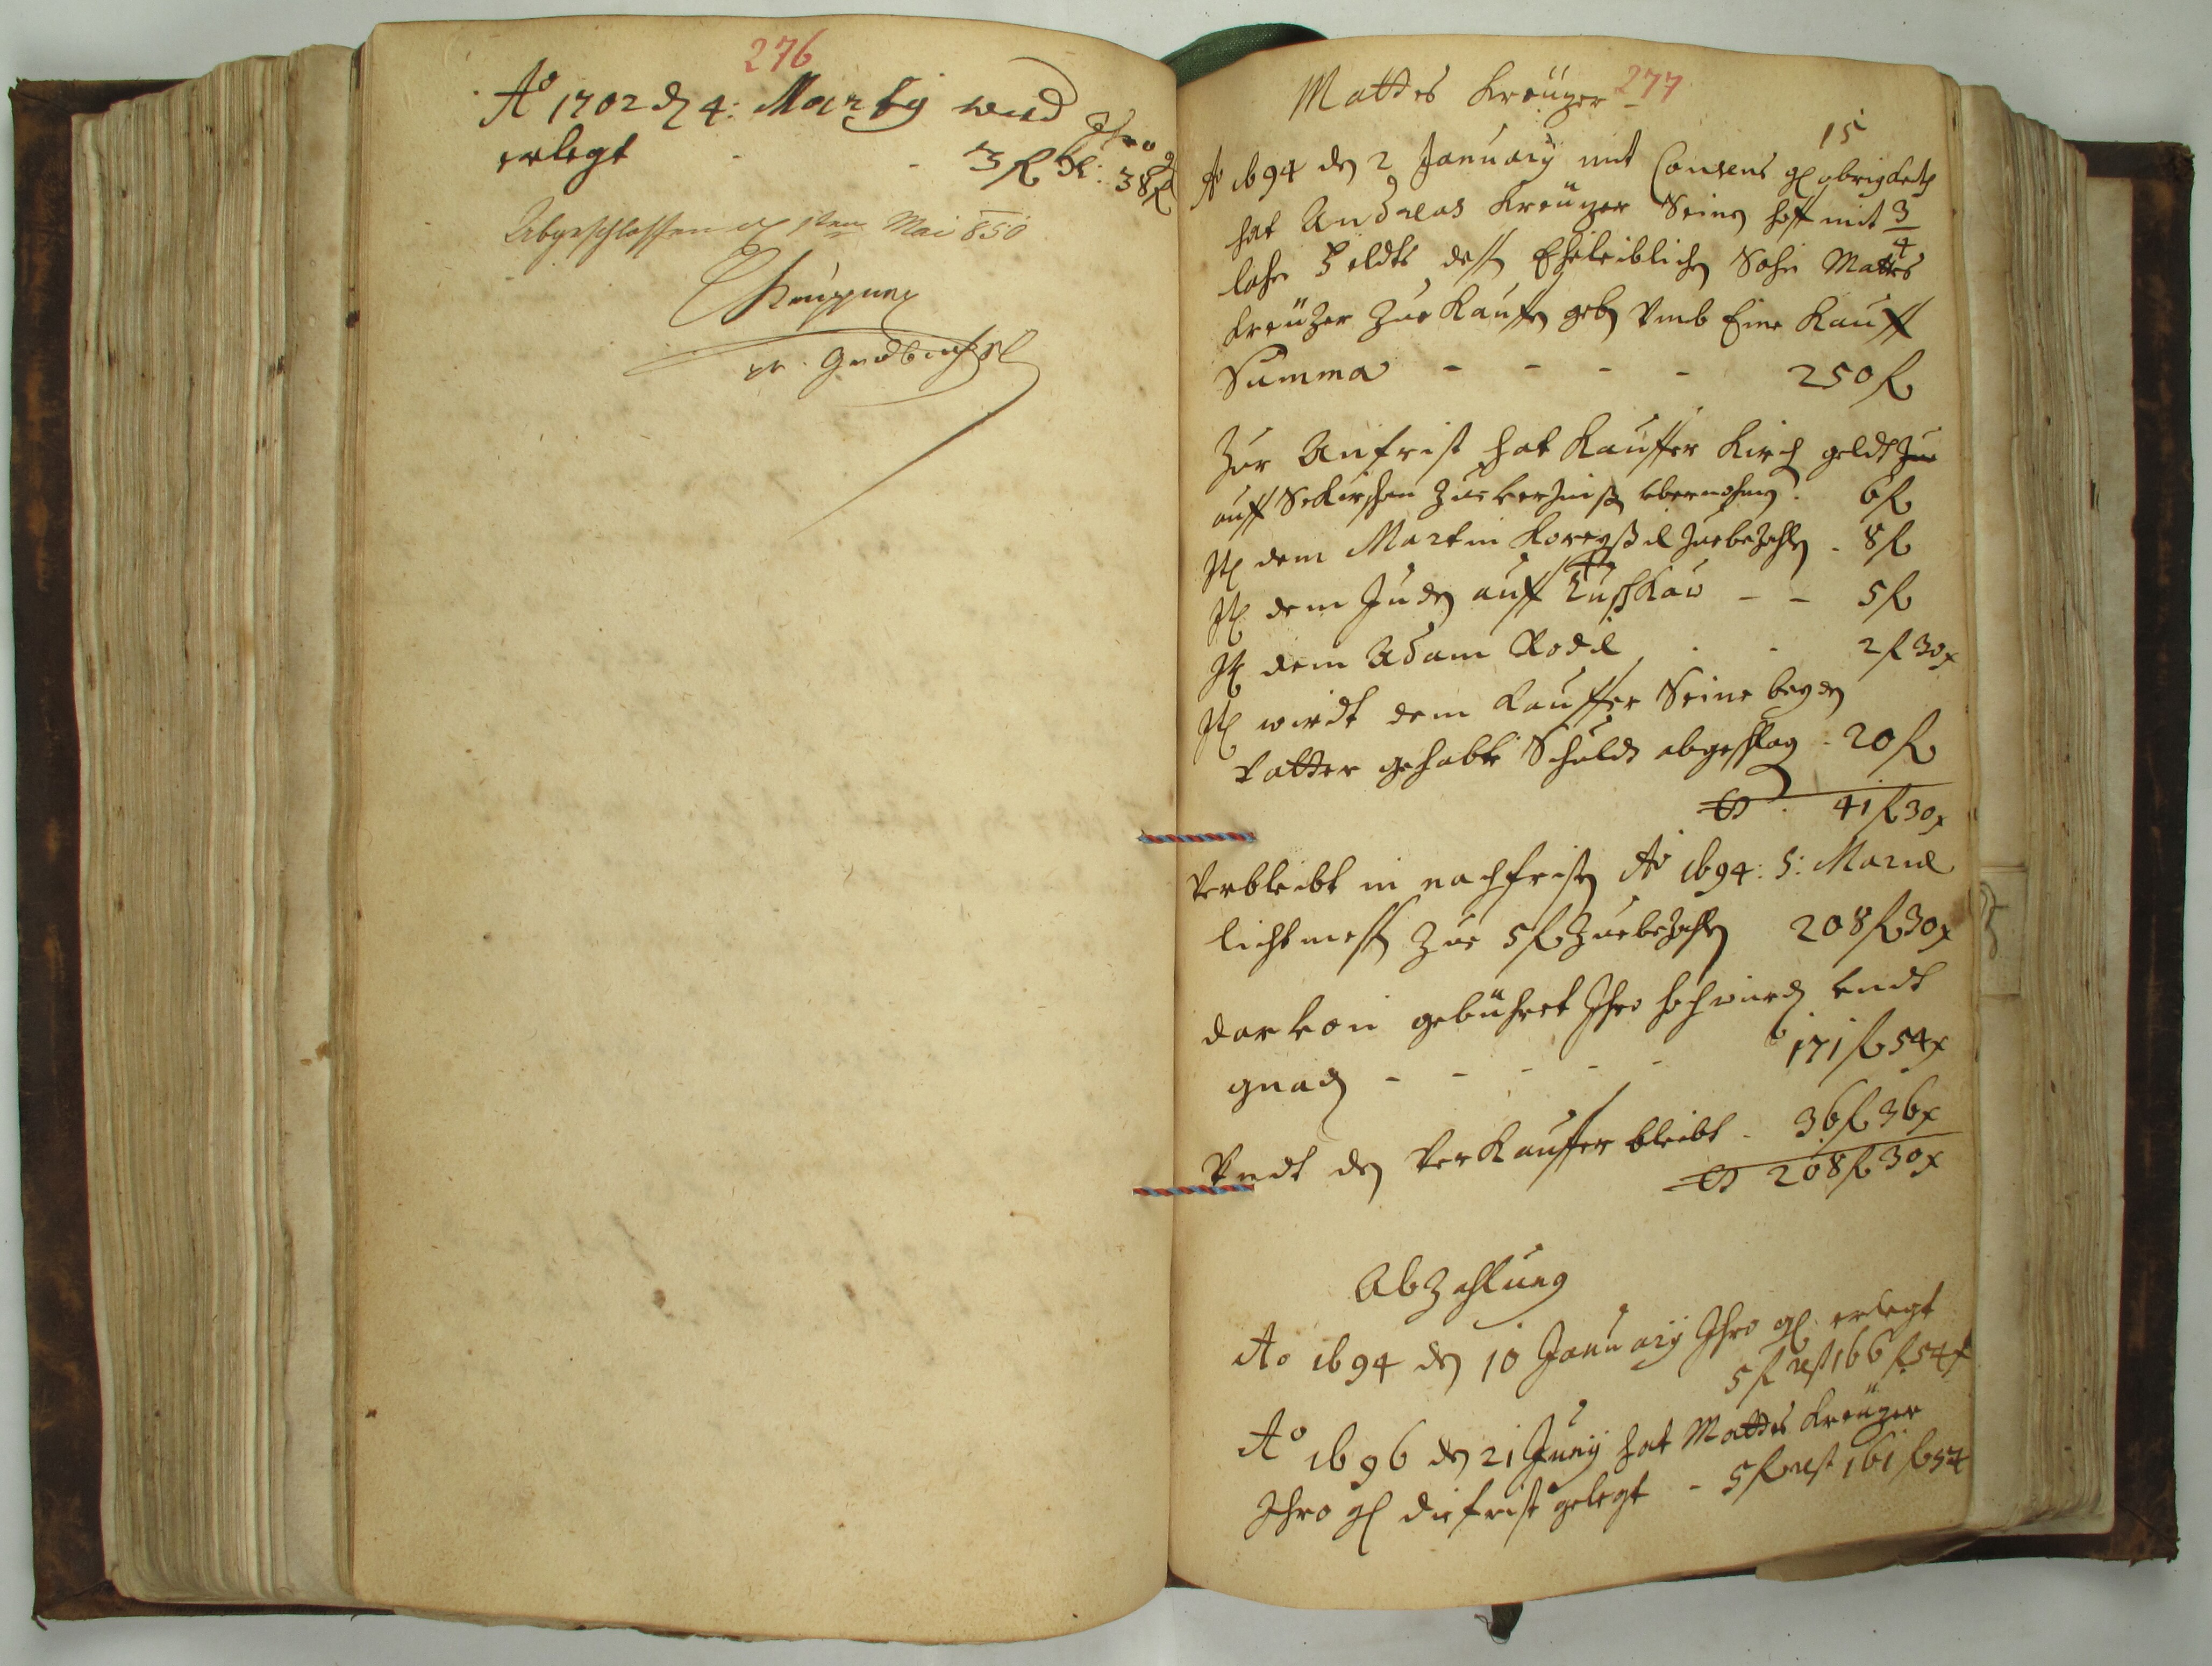 276
Ao 1702 dn 4: Marty wird Ihro g
erlegt - - 3 fl bl: 38 fl
Abgeschlossen den 1ten Mai 850
277
Mattes Kreüzer
15
Ao 1694 den 2 January mit Consens gl obrigkeith
hat Andreas Kreüzer Seinen hoff mit 3/4
lahn Feldts dess Eheleiblichen Sohn Mattes
Kreüzer Zue Kauffen geben Vmb Eine Kauff
Summa - - - - 250 fl
Zur Anfrist hat Kauffer Kirch geldt Zue
auff Zue verzinßen vbernohmen. 6 fl
Itl dem Martin Zuebezahlen - 8 fl
Itl dem Juden auff - - 5 fl
Itl dem Adam Rodel . . 2 fl 30 x
Itl wirdt dem Kauffer Seine beyden
Vatter gehabte Schuldt abgeschlagen - 20 fl
41 fl 30 x
Verbleibt in nachfristen Ao 1694: S: Mariae
lichtmessen Zue 5 fl Zuebezahlen 208 fl 30 x
darvon gebühret Ihro hochwürden vndt
gnaden - - - - - 171 fl 54 x
Vndt den Verkauffer bleibt - 36 fl 36 x
208 fl 30 x
Abzahlung
Ao 1694 den 10 January Ihro gl erlegt
5 fl rest 166 fl 54 x
Ao 1696 den 21 Juny hat Mattes Kreüzer
Ihro gl die frist gelegt - 5 fl rest 161 fl 54